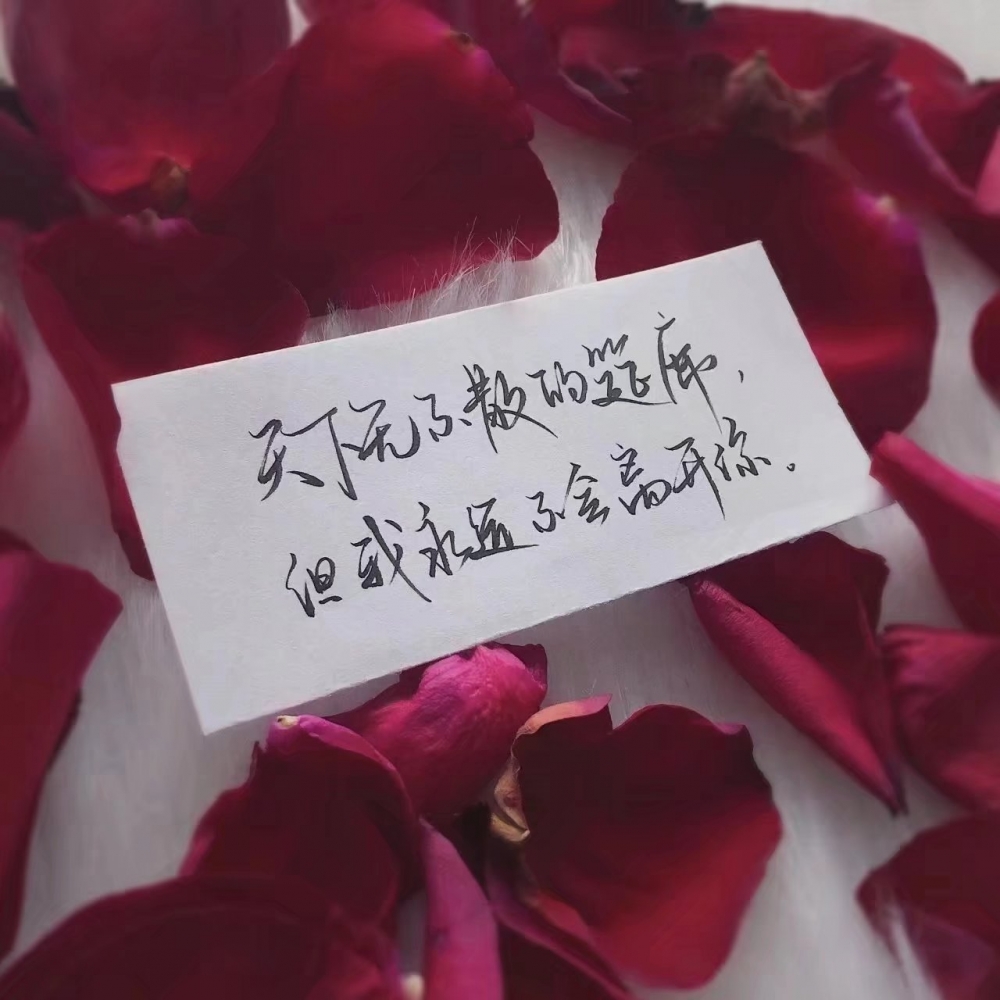 天下无不散的筵席,
但我永远不会离开你。